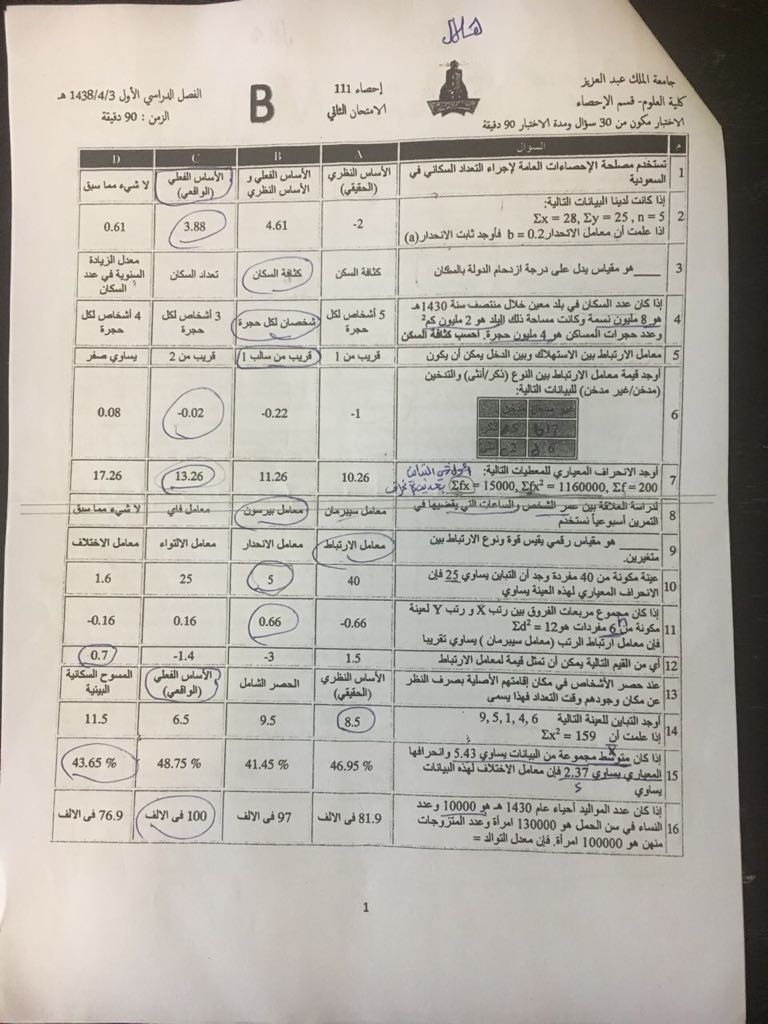 هلال
جامعة الملك عبد العزيز
كلية العلوم- قسم الإحصاء
الاختبار مكون من 30 سؤال ومدة الاختبار 90 دقيقة
إحصاء 111
الامتحان الثاني
B
الفصل الدراسي الأول 1438/4/3 هـ
الزمن : 90 دقيقة
م السؤال A B C D
1 تستخدم مصلحة الإحصاءات العامة لإجراء التعداد السكاني في
السعودية
الأساس النظري (الحقيقي) الأساس الفعلي و الأساس النظري الأساس الفعلي (الواقعي) لا شيء مما سبق
2 إذا كانت لدينا البيانات التالية:
Σx = 28, Σy = 25 , n = 5
اذا علمت أن معامل الانحدار b = 0.2 فأوجد ثابت الانحدار(a)
-2 4.61 3.88 0.61
3 ____هو مقياس يدل على درجة ازدحام الدولة بالسكان
كثافة السكن كثافة السكان تعداد السكان معدل الزيادة السنوية في عدد السكان
4 إذا كان عدد السكان في بلد معين خلال منتصف سنة 1430هـ
هو 8 مليون نسمة وكانت مساحة ذلك البلد هو 2 مليون كم2
وعدد حجرات المساكن هو 4 مليون حجرة. احسب كثافة السكن
5 أشخاص لكل حجرة شخصان لكل حجرة 3 أشخاص لكل حجرة 4 أشخاص لكل حجرة
5 معامل الارتباط بين الاستهلاك وبين الدخل يمكن أن يكون
قريب من 1 قريب من سالب 1 قريب من 2 يساوي صفر
6 أوجد قيمة معامل الارتباط بين النوع (ذكر/أنثى) والتدخين
(مدخن/غير مدخن) للبيانات التالية:
مدخن غير مدخن
ذكر 5 17
أنثى 2 6
-1 -0.22 -0.02 0.08
7 أوجد الانحراف المعياري للمعطيات التالية:
Σfx = 15000, Σfx² = 1160000, Σf = 200
10.26 11.26 13.26 17.26
8 لدراسة العلاقة بين عمر الشخص والساعات التي يقضيها في
التمرين أسبوعياً نستخدم
معامل سبيرمان معامل بيرسون معامل فاي لا شيء مما سبق
9 ____ هو مقياس رقمي يقيس قوة ونوع الارتباط بين
متغيرين.
معامل الارتباط معامل الانحدار معامل الالتواء معامل الاختلاف
10 عينة مكونة من 40 مفردة وجد أن التباين يساوي 25 فإن
الانحراف المعياري لهذه العينة يساوي
40 5 25 1.6
11 إذا كان مجموع مربعات الفروق بين رتب X و رتب Y لعينة
مكونة من 6 مفردات هو Σd² = 12
فإن معامل ارتباط الرتب (معامل سبيرمان ) يساوي تقريبا
-0.66 0.66 0.16 -0.16
12 أي من القيم التالية يمكن أن تمثل قيمة لمعامل الارتباط
1.5 -3 -1.4 0.7
13 عند حصر الأشخاص في مكان إقامتهم الأصلية بصرف النظر
عن مكان وجودهم وقت التعداد فهذا يسمى
الأساس النظري (الحقيقي) الحصر الشامل الأساس الفعلي (الواقعي) المسوح السكانية البينية
14 أوجد التباين للعينة التالية 9, 5, 1, 4, 6
إذا علمت أن Σx² = 159
8.5 9.5 6.5 11.5
15 إذا كان متوسط مجموعة من البيانات يساوي 5.43 وانحرافها
المعياري يساوي 2.37 فإن معامل الاختلاف لهذه البيانات
يساوي
46.95 % 41.45 % 48.75 % 43.65 %
16 إذا كان عدد المواليد أحياء عام 1430 هـ هو 10000 وعدد
النساء في سن الحمل هو 130000 امرأة وعدد المتزوجات
منهن هو 100000 امرأة. فإن معدل التوالد =
81.9 في الالف 97 في الالف 100 في الالف 76.9 في الالف
1